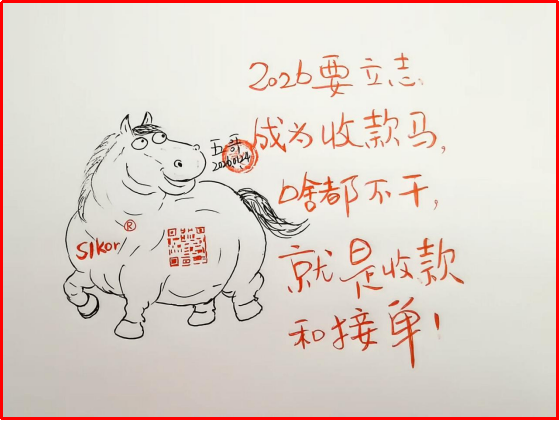 2026要立志
成为收款马,
啥都不干,
就是收款
和接单!
五哥
20260124
Sikor®